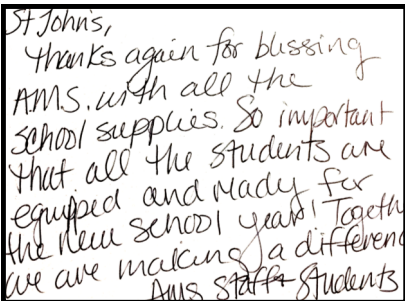 St John's,
Thanks again for blessing
A.M.S. with all the
school supplies. So important
that all the students are
equipped and ready for
the new school year! Togeth
we are making a differenc
AMS Staff + Students